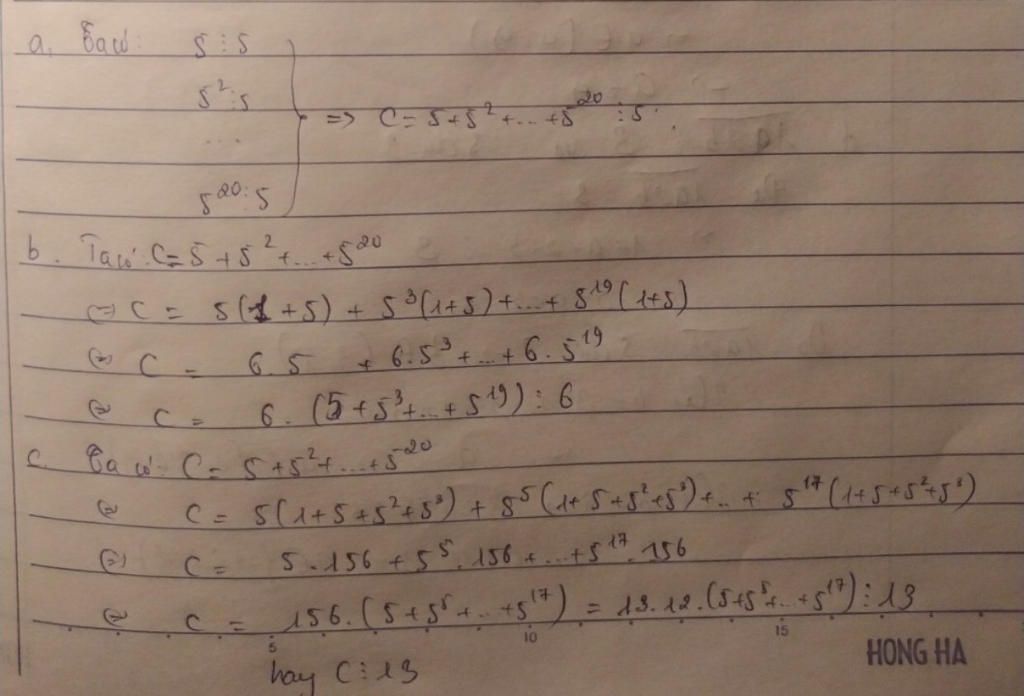 a, Ta có: 5 ⋮ 5
5² ⋮ 5
...
5²⁰ ⋮ 5
=> C = 5 + 5² + ... + 5²⁰ ⋮ 5.
b. Ta có: C = 5 + 5² + ... + 5²⁰
(=) C = 5(1 + 5) + 5³(1+5) + ... + 5¹⁹(1+5)
(=) C = 6.5 + 6.5³ + ... + 6.5¹⁹
(=) C = 6.(5 + 5³ + ... + 5¹⁹) ⋮ 6
c. Ta có: C = 5 + 5² + ... + 5²⁰
(=) C = 5(1 + 5 + 5² + 5³) + 5⁵(1 + 5 + 5² + 5³) + ... + 5¹⁷(1 + 5 + 5² + 5³)
(=) C = 5.156 + 5⁵.156 + ... + 5¹⁷.156
(=) C = 156.(5 + 5⁵ + ... + 5¹⁷) = 13.12.(5 + 5⁵ + ... + 5¹⁷) ⋮ 13
5 10 15
HONG HA
hay C ⋮ 13